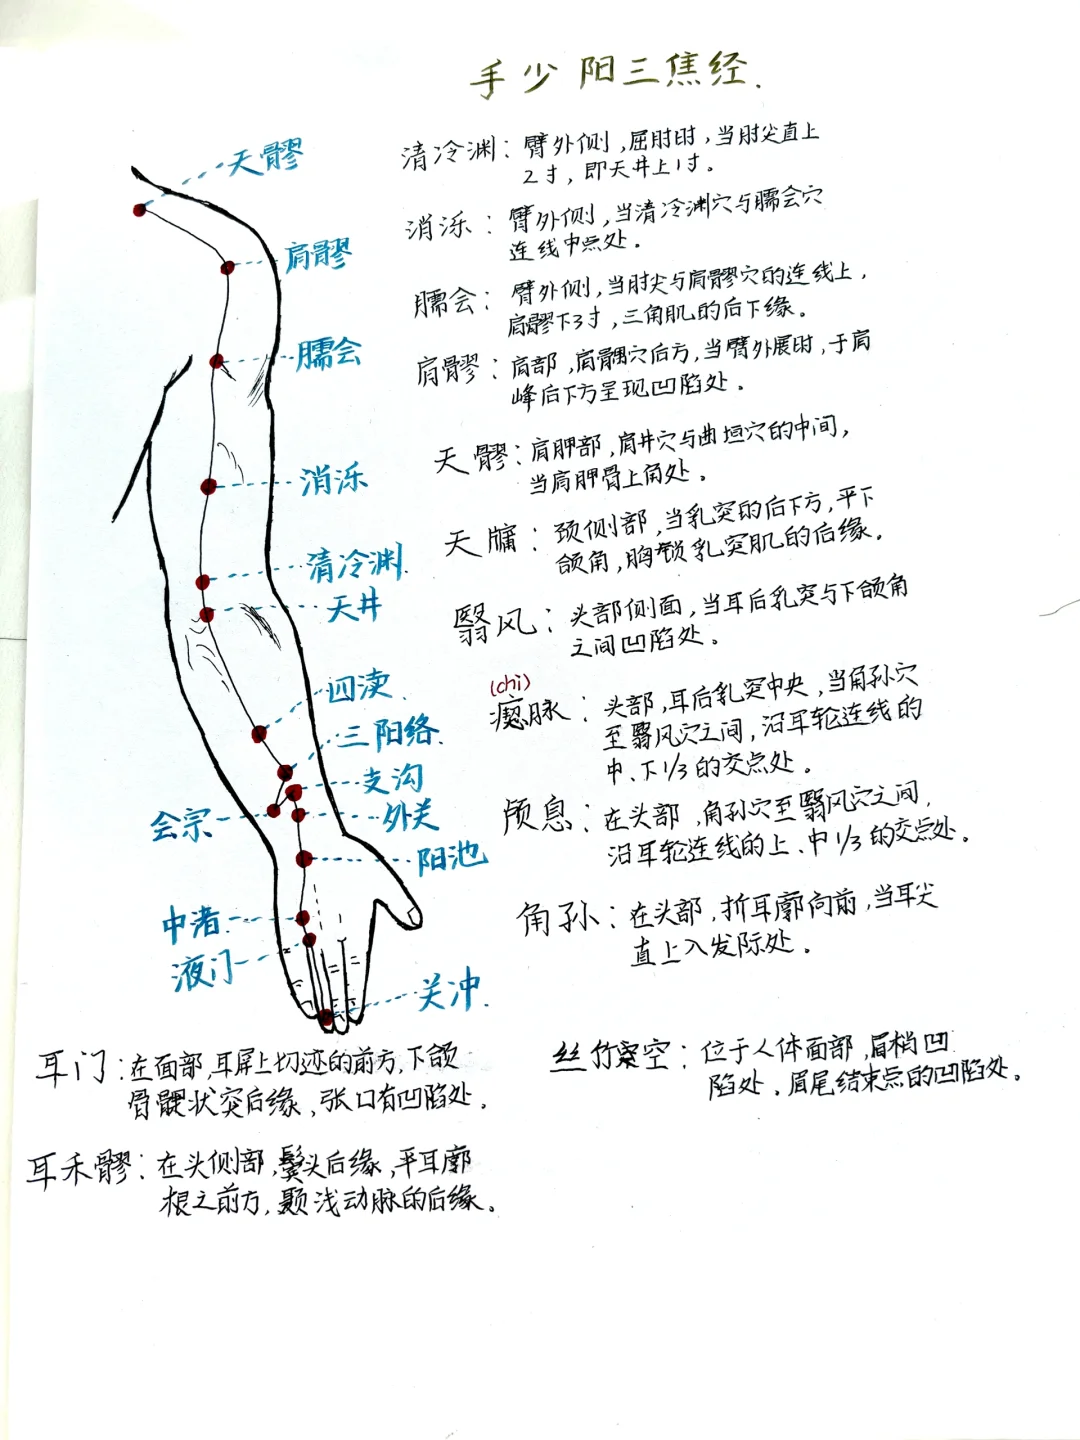 手少阳三焦经.
天髎
肩髎
臑会
消泺
清冷渊.
天井
四渎.
三阳络.
支沟
会宗
外关
阳池
中渚
液门
关冲.
清冷渊：臂外侧,屈肘时,当肘尖直上
2寸,即天井上1寸。
消泺：臂外侧,当清冷渊穴与臑会穴
连线中点处。
臑会：臂外侧,当肘尖与肩髎穴的连线上,
肩髎下3寸,三角肌的后下缘。
肩髎：肩部,肩髃穴后方,当臂外展时,于肩
峰后下方呈现凹陷处。
天髎：肩胛部,肩井穴与曲垣穴的中间,
当肩胛骨上角处。
天牖：颈侧部,当乳突的后下方,平下
颌角,胸锁乳突肌的后缘。
翳风：头部侧面,当耳后乳突与下颌角
之间凹陷处。
(chi)
瘛脉：头部,耳后乳突中央,当角孙穴
至翳风穴之间,沿耳轮连线的
中、下1/3的交点处。
颅息：在头部,角孙穴至翳风穴之间,
沿耳轮连线的上、中1/3的交点处。
角孙：在头部,折耳廓向前,当耳尖
直上入发际处。
耳门：在面部,耳屏上切迹的前方,下颌
骨髁状突后缘,张口有凹陷处。
丝竹空：位于人体面部,眉梢凹
陷处。眉尾结束点的凹陷处。
耳禾髎：在头侧部,鬓头后缘,平耳廓
根之前方,颞浅动脉的后缘。